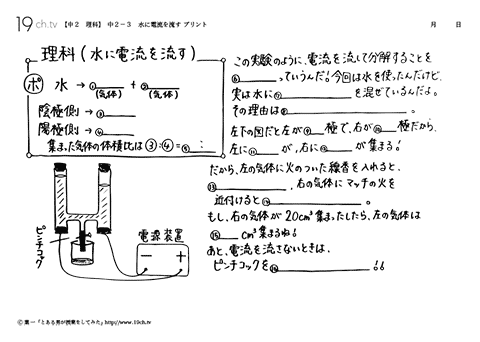 19ch.tv 【中2 理科】 中2-3 水に電流を流す プリント
月 日
理科(水に電流を流す)
ポ 水 → ① + ②
(気体) (気体)
陰極側 → ③
陽極側 → ④
集まった気体の体積比は ③:④=⑤ :
ピンチコック
電源装置
− +
この実験のように、電流を流して分解することを
⑥ っていうんだ!今回は水を使ったんだけど、
実は水に⑦ を混ぜているんだよ。
その理由は⑧ 。
左下の図だと左が⑨ 極で、右が⑩ 極だから、
左に⑪ が、右に⑫ が集まる!
だから、左の気体に火のついた線香を入れると、
⑬ 、右の気体にマッチの火を
近付けると⑭ 。
もし、右の気体が20cm³集まったしたら、左の気体は
⑮ cm³集まるね!
あと、電流を流さないときは、
ピンチコックを⑯ !!
© 葉一「とある男が授業をしてみた」http://www.19ch.tv